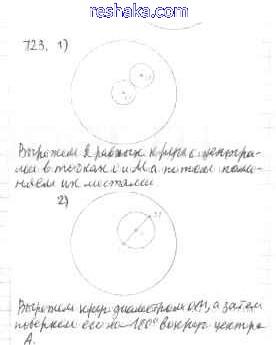 reshaka.com
723. 1)
Вырежем 2 равных круга с центра-
ми в точках O и M а потом поме-
няем их местами
2)
Вырежем круг диаметром OM, а затем
повернем его на 180° вокруг центра
A.